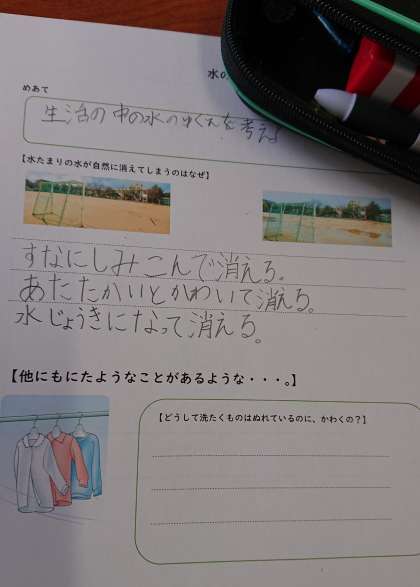 水の
めあて
生活の中の水のゆくえを考え
【水たまりの水が自然に消えてしまうのはなぜ】
すなにしみこんで消える。
あたたかいとかわいて消える。
水じょうきになって消える。
【他にもにたようなことがあるような・・・。】
【どうして洗たくものはぬれているのに、かわくの？】